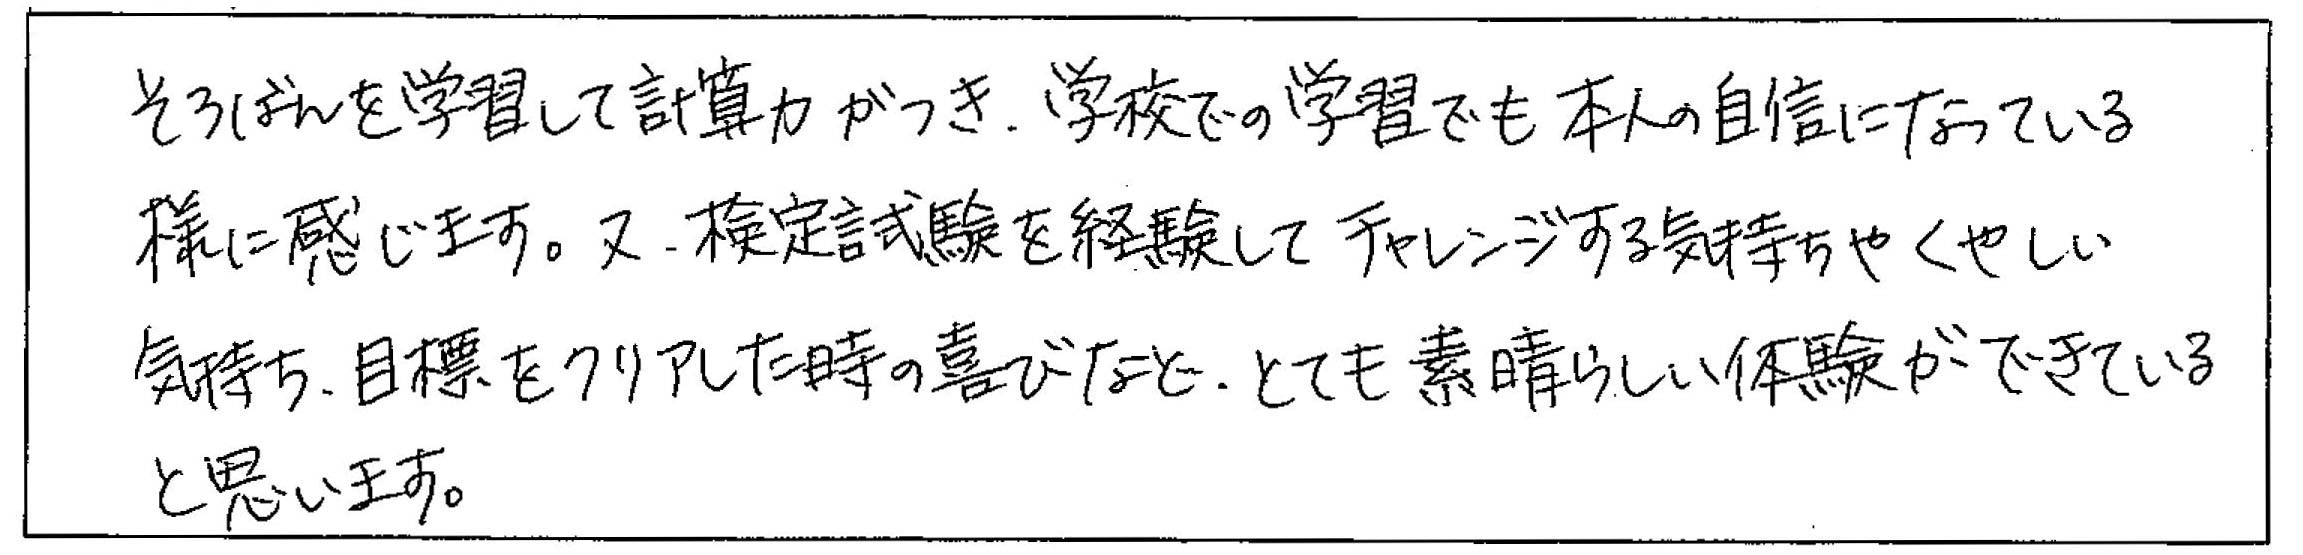 そろばんを学習して計算力がつき、学校での学習でも本人の自信になっている
様に感じます。又、検定試験を経験してチャレンジする気持ちやくやしい
気持ち、目標をクリアした時の喜びなど、とても素晴らしい体験ができている
と思います。